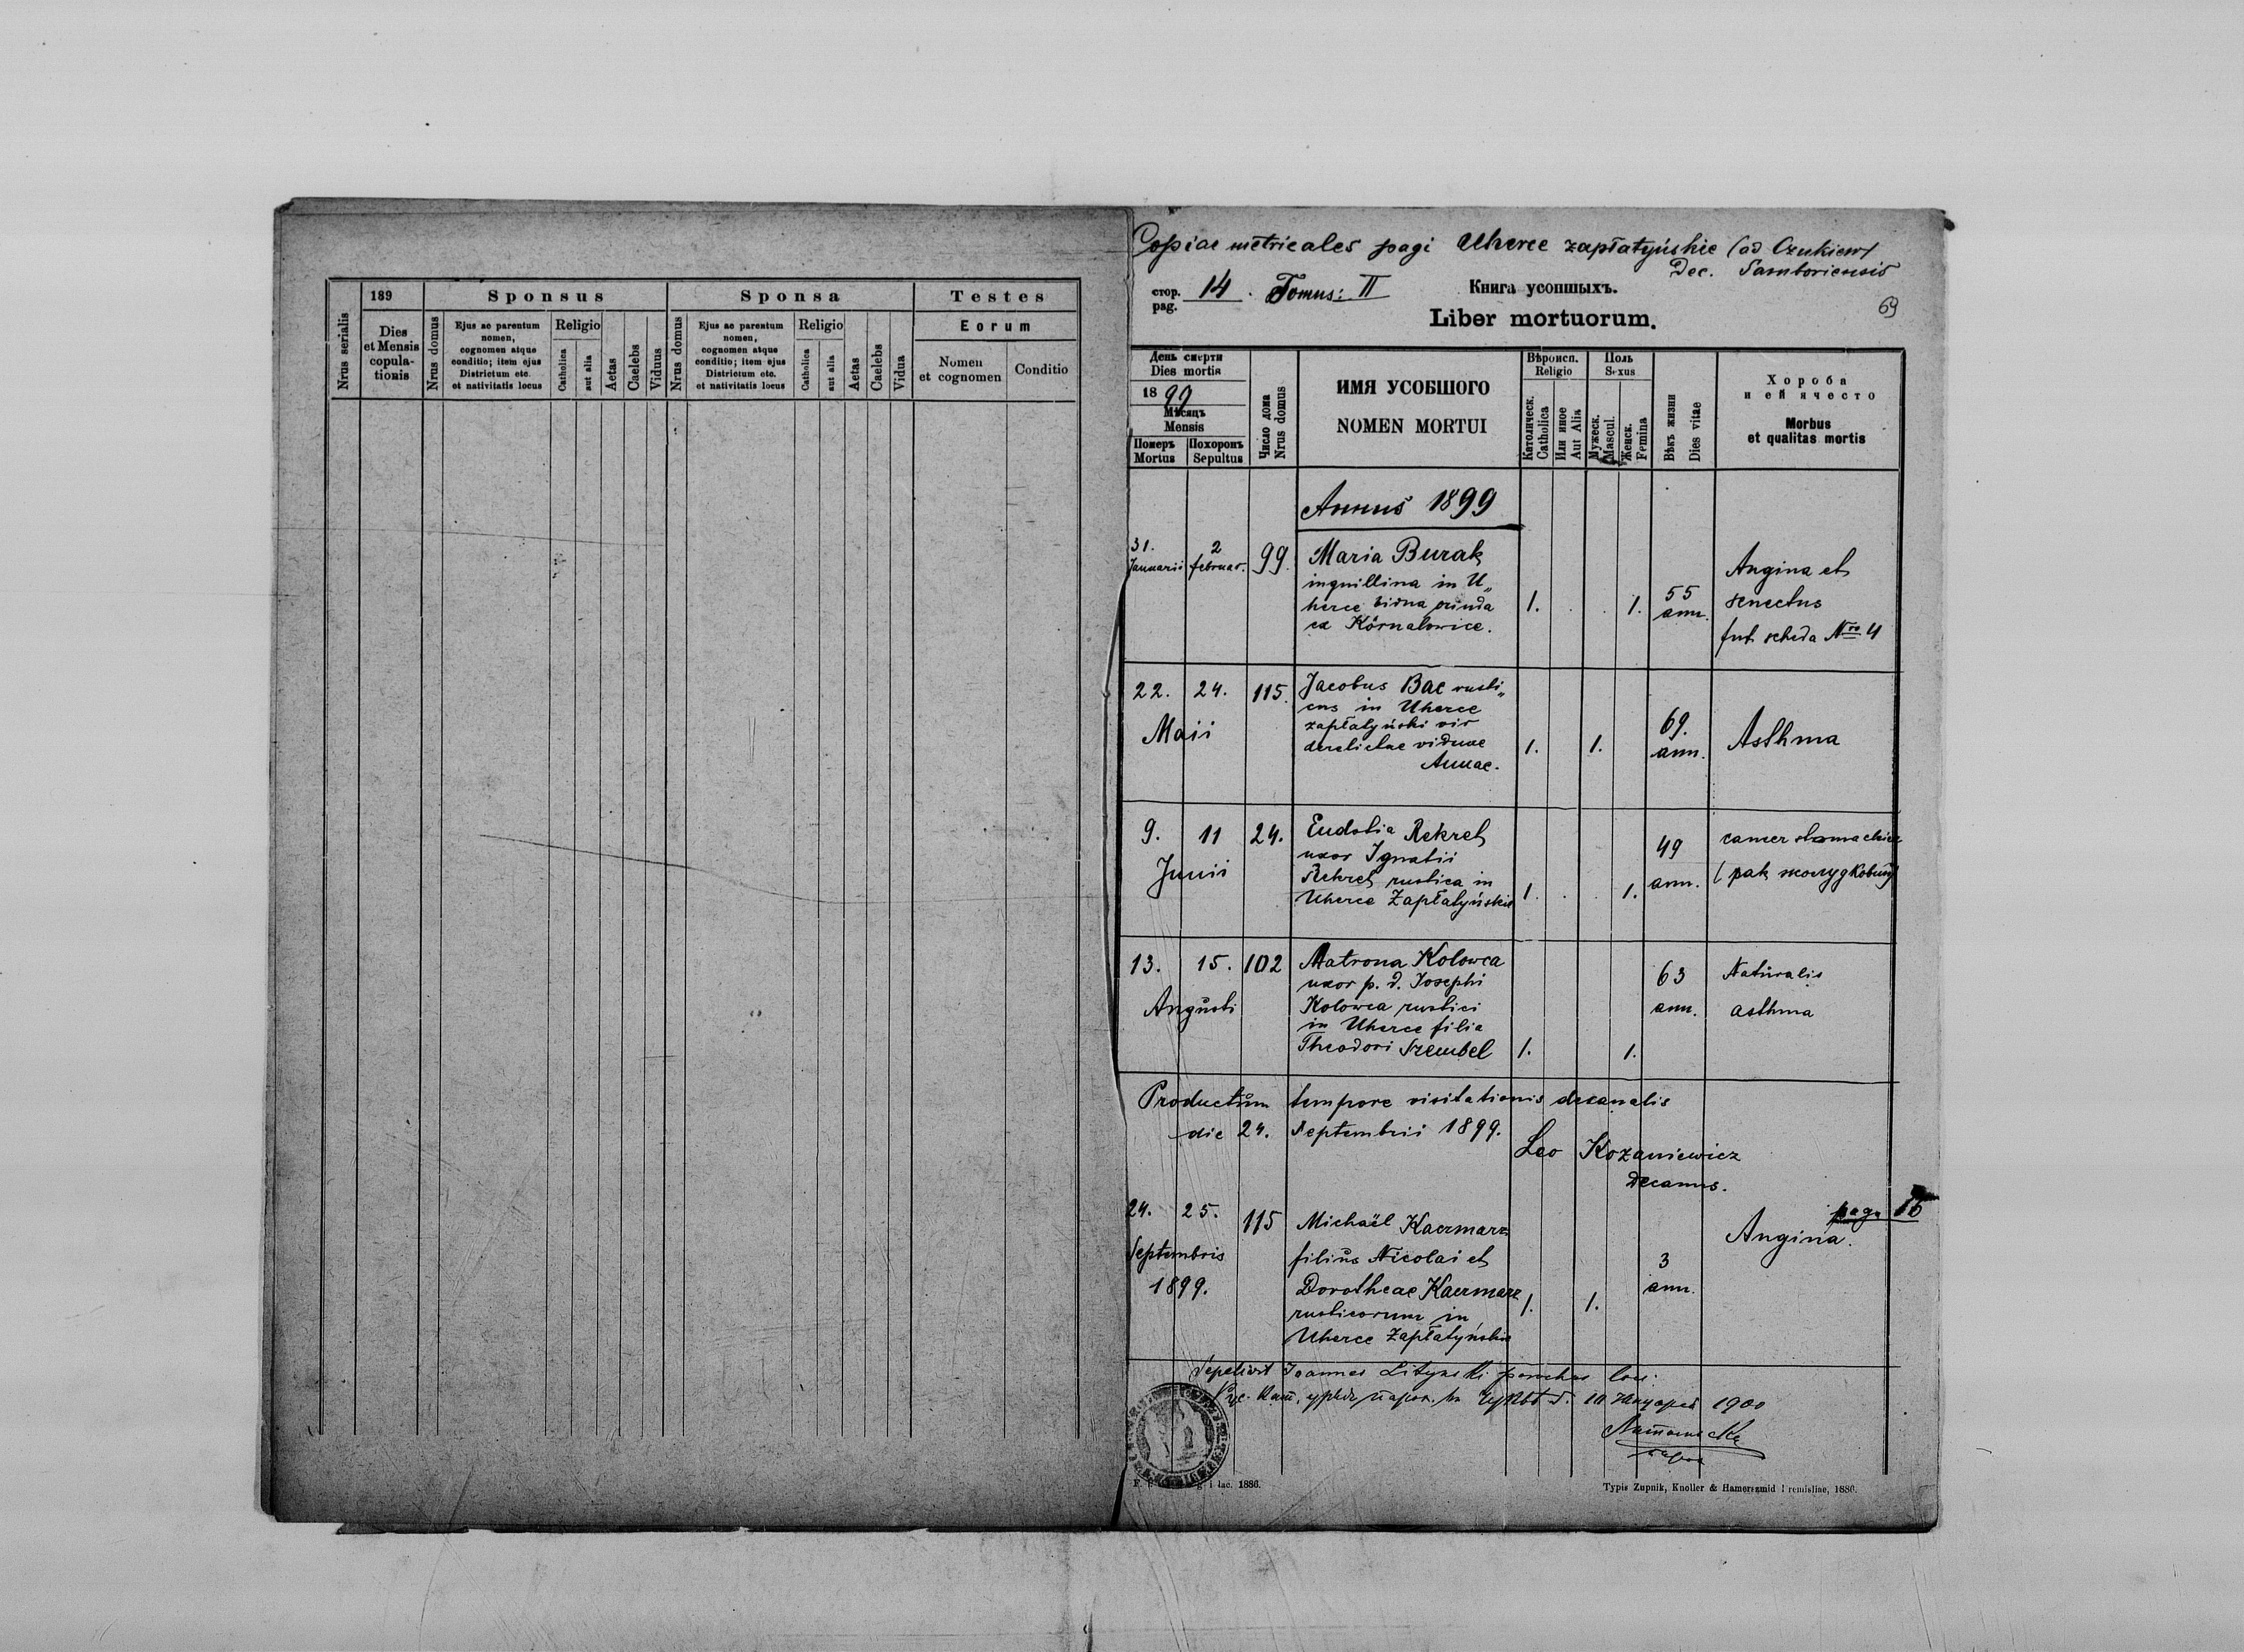 189
Sponsus
Sponsa
Testes
Nrus serialis
Dies
et Mensis
copula-
tionis
Nrus domus
Ejus ac parentum
nomen,
cognomen atque
conditio; item ejus
Districtum etc.
et nativitatis locus
Religio
Catholica
aut alia
Aetas
Caelebs
Viduus
Nrus domus
Ejus ac parentum
nomen,
cognomen atque
conditio; item ejus
Districtum etc.
et nativitatis locus
Religio
Catholica
aut alia
Aetas
Caelebs
Vidua
Eorum
Nomen
et cognomen
Conditio
Copiae metricales pagi Uherce zapłatyńskie (ad Czukiew)
Dec. Samboriensis
стор.
pag.
14. Tomus: II
Книга усопшыхъ.
69
Liber mortuorum.
День смерти
Dies mortis
1899
Мѣсяцъ
Mensis
Померъ
Mortus
Похоронъ
Sepultus
Число дома
Nrus domus
ИМЯ УСОБШОГО
NOMEN MORTUI
Вѣроисп.
Religio
Католическ.
Catholica
Или иное
Aut Alia
Полъ
Sexus
Мужеск.
Mascul.
Женск.
Femina
Вѣкъ жизни
Dies vitae
Хороба
и ей ячесто
Morbus
et qualitas mortis
Annus 1899
31.
Januarii
2
februar.
99.
Maria Burak
inquillina in U„
herce
ex Kornalowice.
1. 1.
55
ann.
Angina et
senectus
scheda Nro 4
22. 24.
Maii
115.
Jacobus Bac rusti„
cus in Uherce
zapłatyński vir
derelictae viduae
Annae.
1. 1.
69.
ann.
Asthma
9. 11
Junii
24.
Eudotia Rekret
uxor Ignatii
Rekret rustica in
Uherce Zapłatyńskie
1. 1.
49
ann.
cancer
(рак
13. 15.
Augusti
102
Matrona Kolowca
uxor p. d. Josephi
Kolowca rustici
in Uherce filia
Theodori Szembel
1. 1.
63
ann.
Naturalis
asthma
Productum tempore visitationis decanalis
die 24. Septembrii 1899.
Leo Kozaniewicz
Decanus.
pag. 16
24. 25.
Septembris
1899.
115
Michaël Kaczmarz
filius Nicolai et
Dorotheae Kaczmarz
rusticorum in
Uherce Zapłatyńskie
1. 1.
3
ann.
Angina.
Sepelivit Joannes Lityński parochus loci.
1900
1886.
Typis Zupnik, Knoller & Hamerszmid Premisliae, 1886.